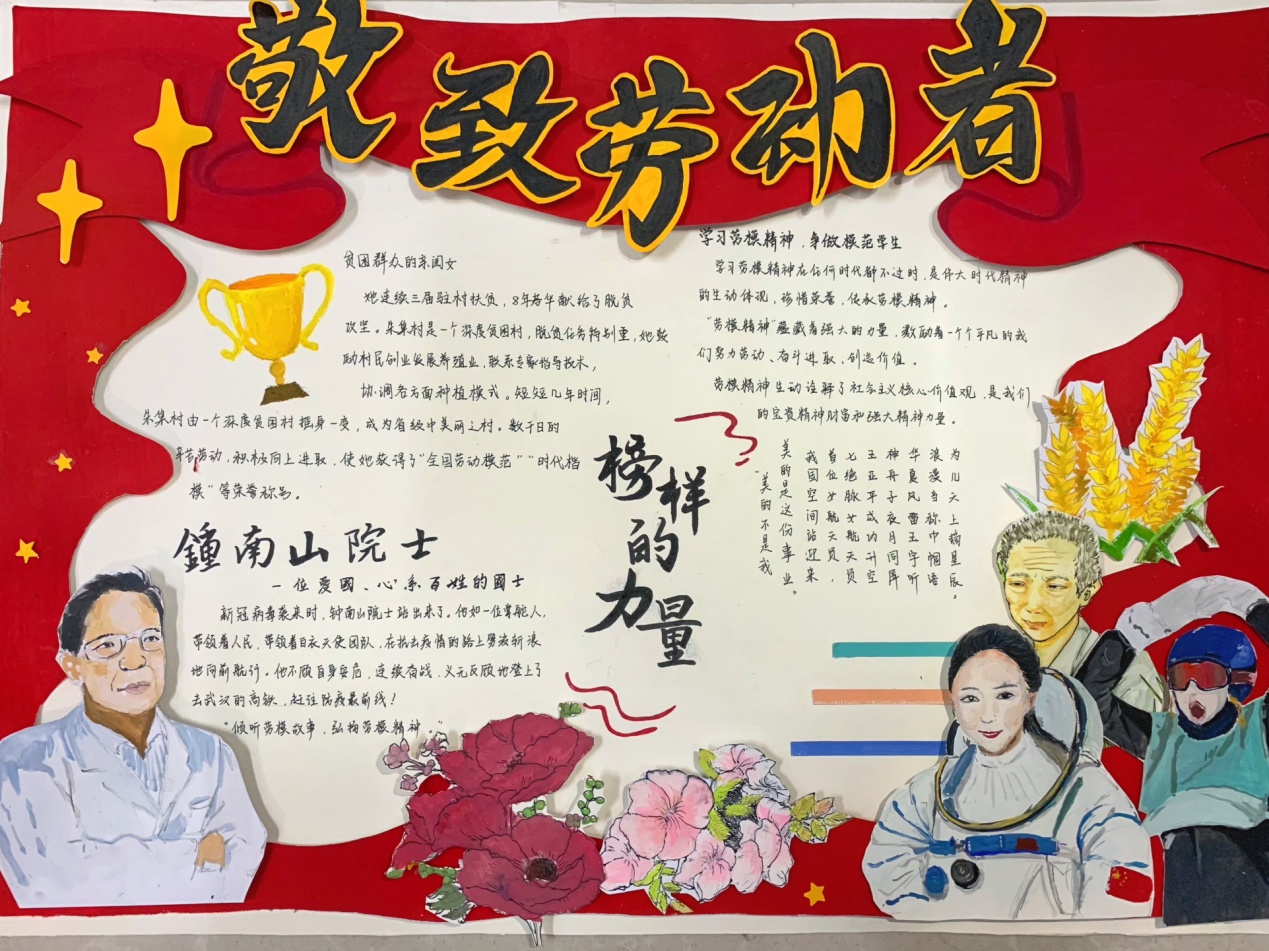 敬致劳动者
贫困群众的亲闺女
她连续三届驻村扶贫，8年芳华献给了脱贫
攻坚。朱集村是一个深度贫困村，脱贫任务特别重，她鼓
励村民创业发展养殖业，联系专家指导技术，
协调各方面种植模式。短短几年时间，
朱集村由一个深度贫困村摇身一变，成为省级中美丽之村。数千日的
辛苦劳动，积极向上进取，使她获得了“全国劳动模范”“时代楷
模”等荣誉称号。
鍾南山院士
一位爱國、心系百姓的國士
新冠病毒袭来时，钟南山院士站出来了。他如一位掌舵人，
带领着人民，带领着白衣天使团队，在抗击疫情的路上劈波斩浪
地向前航行。他不顾自身安危，连续奋战，义无反顾地登上了
去武汉的高铁，赶往防疫最前线！
“倾听劳模故事，弘扬劳模精神。”
榜样的力量
学习劳模精神，争做模范学生
学习劳模精神在任何时代都不过时，是伟大时代精神
的生动体现，珍惜荣誉，传承劳模精神。
“劳模精神”蕴藏着强大的力量，激励着一个个平凡的我
们努力劳动、奋斗进取、创造价值。
劳模精神生动诠释了社会主义核心价值观，是我们
的宝贵精神财富和强大精神力量。
为儿天上摘星辰。
浪漫当称巾帼语
华夏风雷王宇听
神舟子夜月同屏
王亚平成功升空
七绝 女航天员
首位女航天员
我国空间站迎来，
美的是这份事业。
“美的不是我